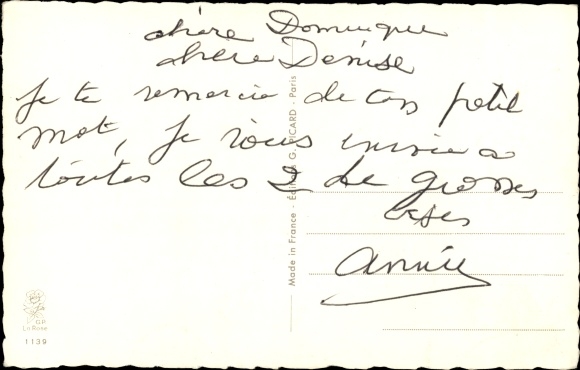 chère Dominique
chère Denise
Je te remercie de ton petit
mot, je vous envie a
toutes les 2 de grosses
bises
Annie
Made in France - Éditions G. PICARD - Paris
G.P.
La Rose
1139